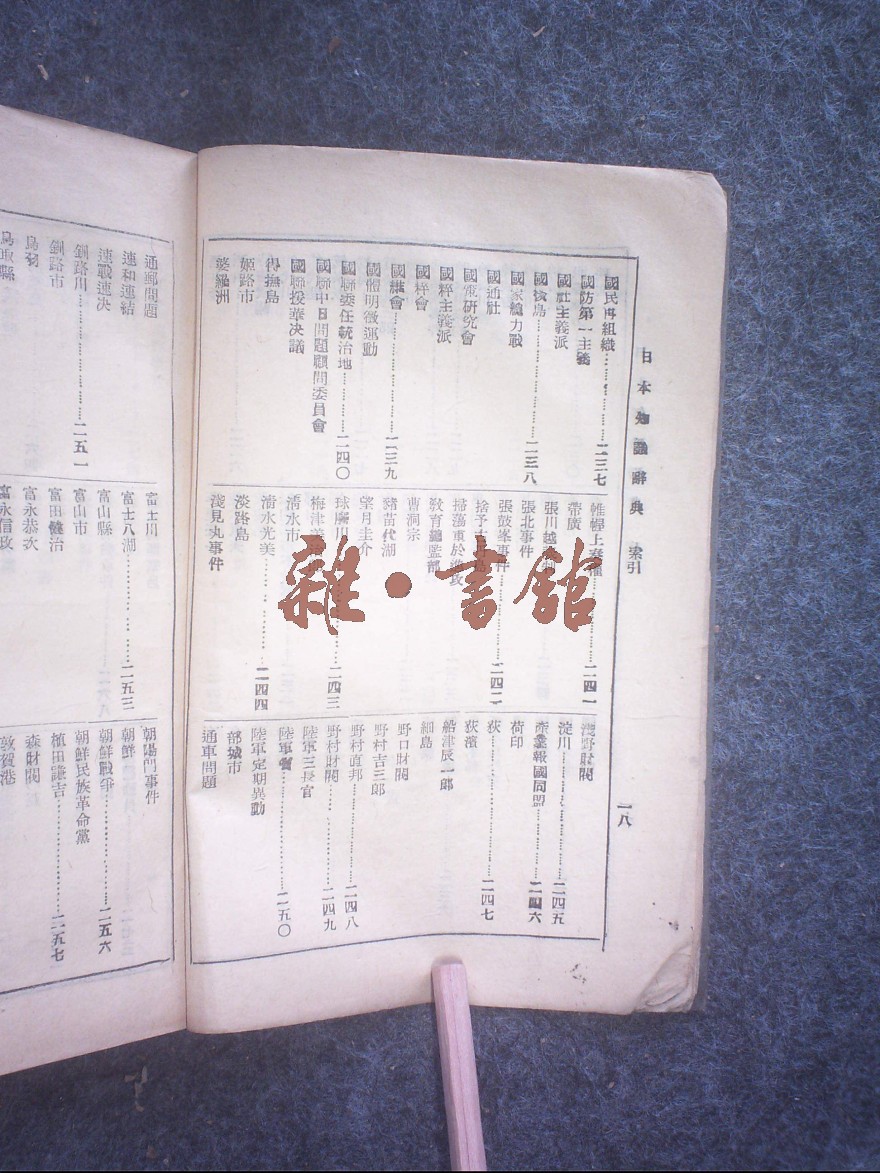 日本知識辭典 索引
一八
國民再組織……二三七
國防第一主義
國社主義派
國後島……二三八
國家總力戰
國通社
國策研究會
國粹主義派
國粹會
國維會……二三九
國體明徵運動
國聯委任統治地……二四〇
國聯中日問題顧問委員會
國聯援華決議
得撫島
姬路市
婆羅洲
帷幄上奏權……二四一
帶廣
張北事件
張鼓峯事件……二四二
掃蕩重於進攻
教育總監部
曹洞宗
豬苗代湖
望月圭介
球磨川……二四三
梅津美治郎
清水市
清水光美……二四四
淡路島
淺見丸事件
淺野財閥
淀川……二四五
產業報國同盟……二四六
荷印
荻……二四七
荻濱
船津辰一郎
細島
野口財閥
野村吉三郎
野村直邦……二四八
野村財閥……二四九
陸軍三長官
陸軍省……二五〇
陸軍定期異動
部城市
通車問題
通郵問題
連和連結
速戰速決
釧路川……二五一
釧路市
鳥羽
鳥取縣
富士川
富士八湖……二五三
富山縣
富山市
富田健治
富永恭次
富永信政
朝陽門事件
朝鮮
朝鮮戰爭……二五六
朝鮮民族革命黨
植田謙吉……二五七
森財閥
敦賀港
雜·書館